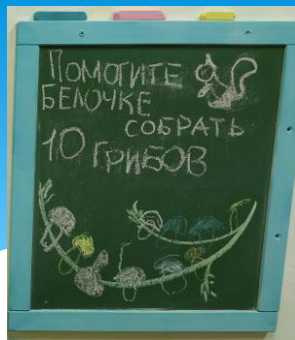 ПОМОГИТЕ
БЕЛОЧКЕ
СОБРАТЬ
10 ГРИБОВ